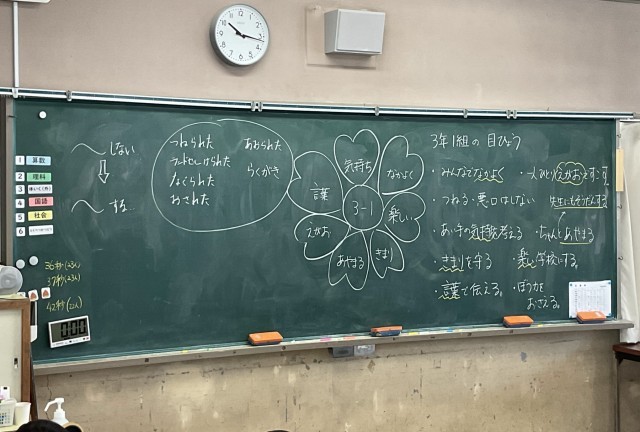 〜しない
〜する。
つねられた
なぐられた
おされた
あおられた
らくがき
気持ち
なかよく
言葉
楽しい
3-1
えがお
あやまる
きまり
3年1組の目ひょう
・みんなでなかよく
・つねる・悪口はしない
・あい手の気持考える
・きまりを守る
・言葉で伝える。
・一人ひとりえがおですごす
・ちゃんとあやまる
・楽しい学校にする。
・ぼう力を
おさえる。
1 算数
2 理科
3
4 国語
5 社会
6
36秒(23人)
37秒(23人)
42秒(22人)